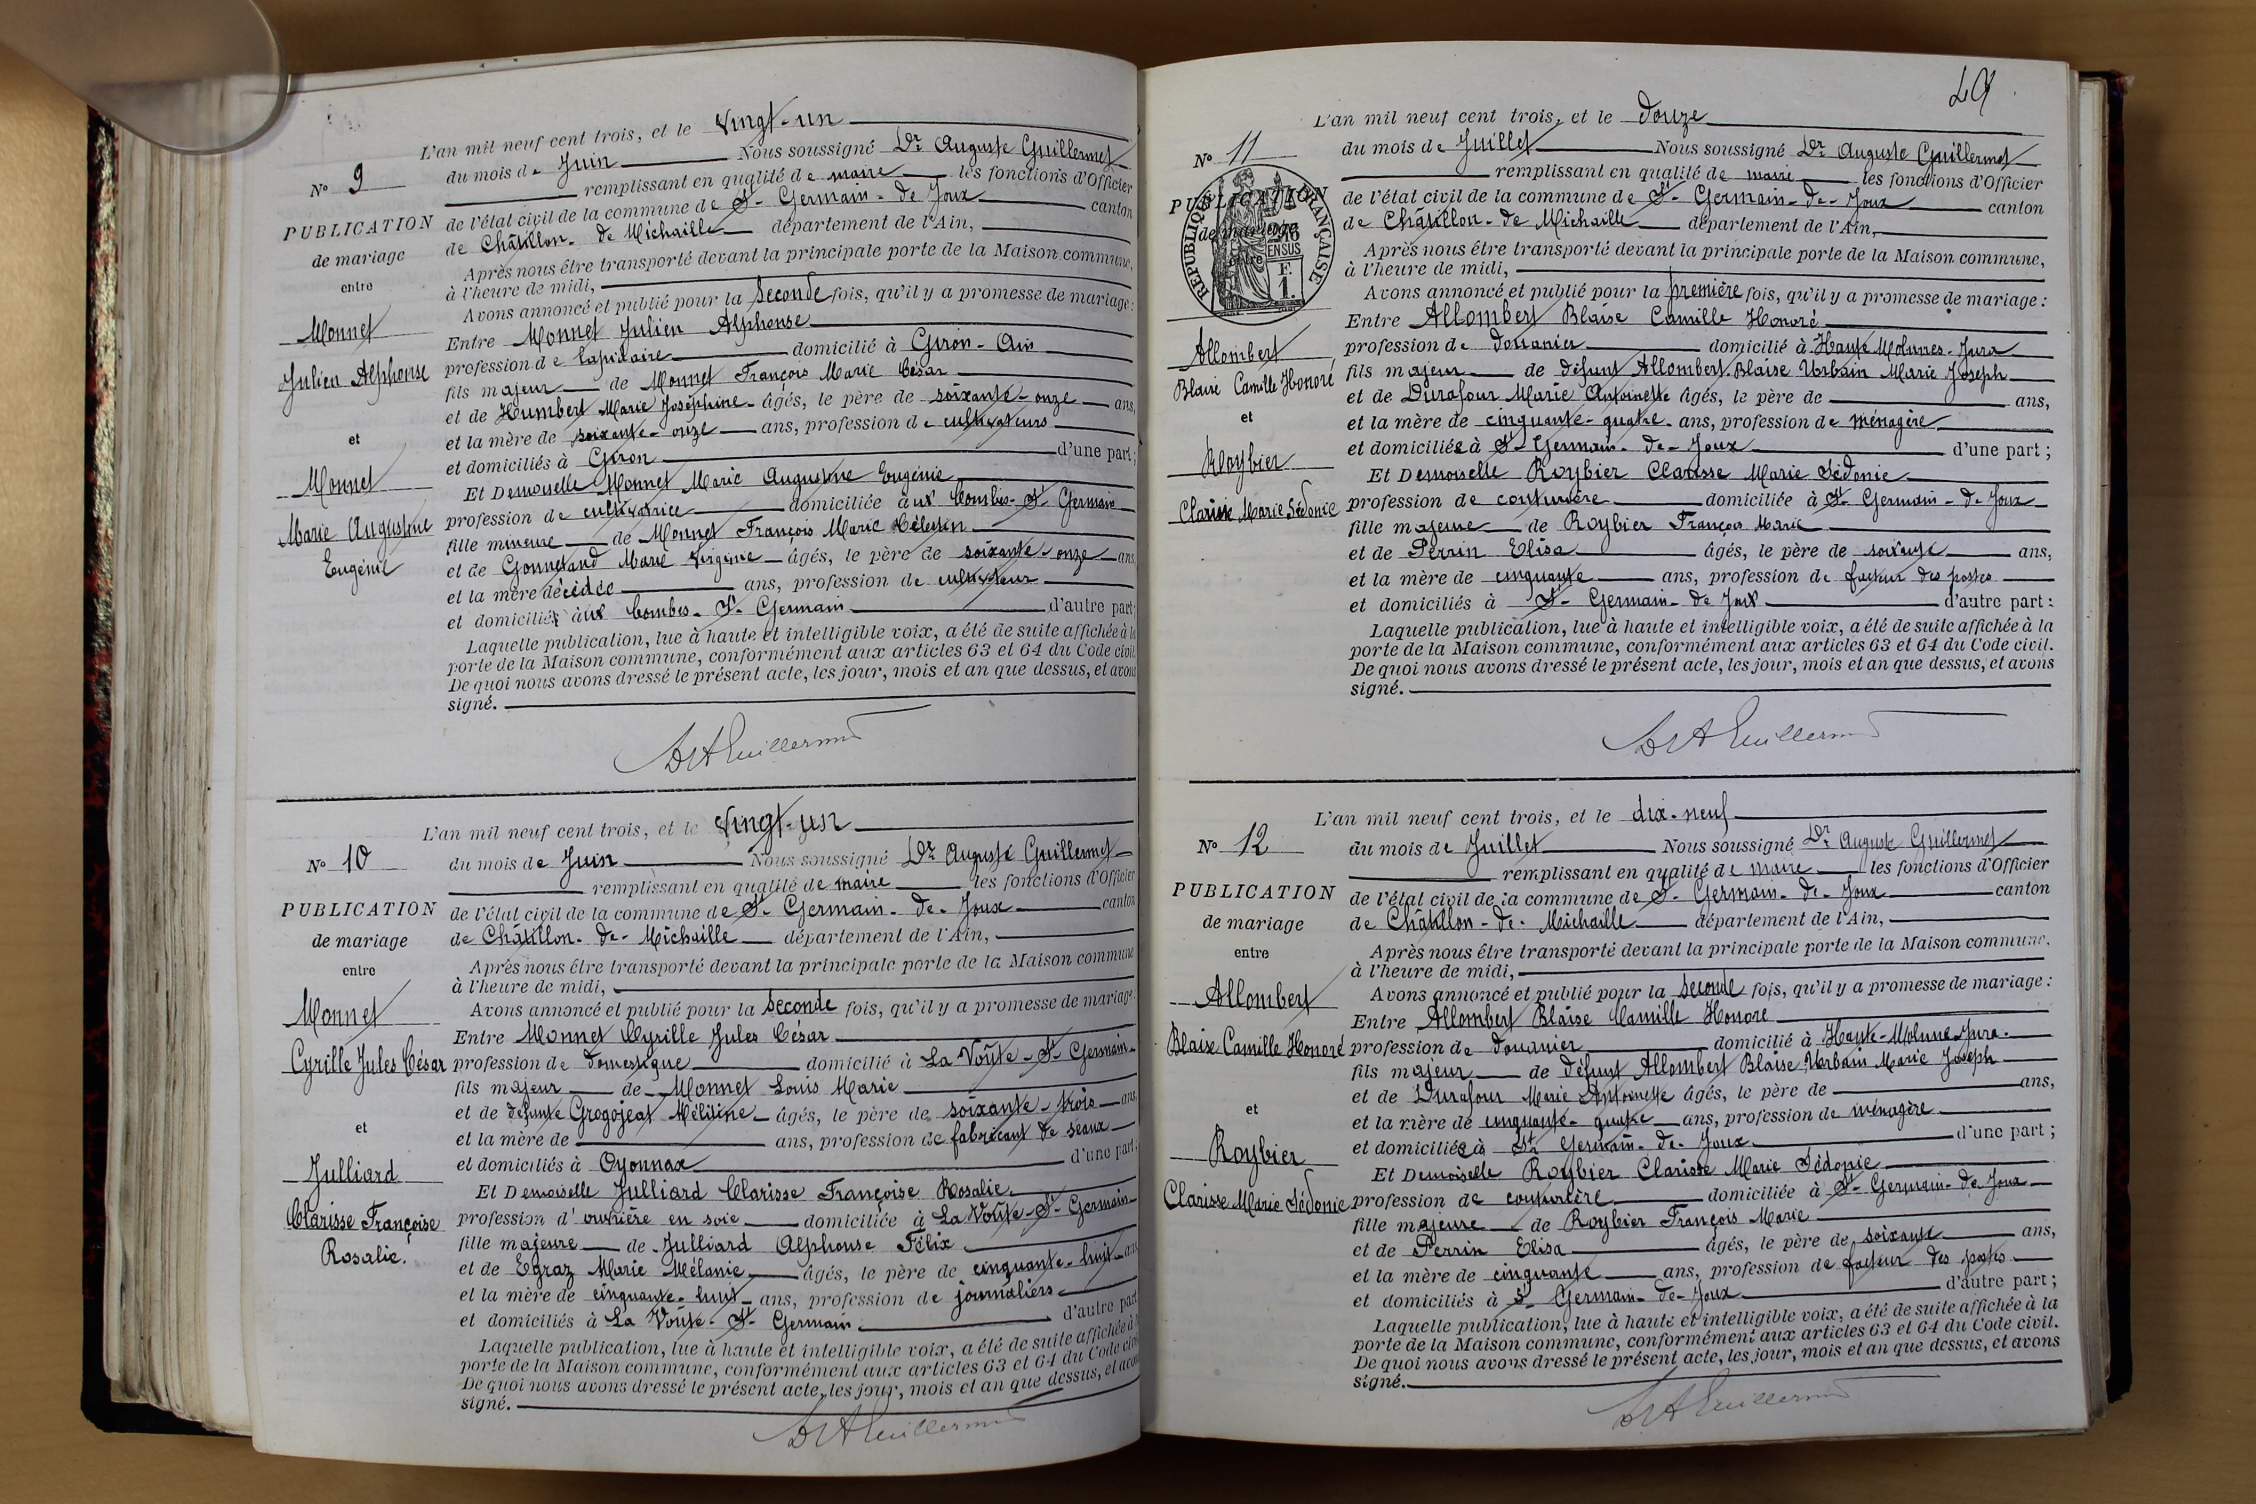 L'an mil neuf cent trois, et le Vingt-un
Nº 9
du mois de Juin Nous soussigné Dr Auguste Guillermet
remplissant en qualité de maire les fonctions d'Officier
PUBLICATION
de l'état civil de la commune de St-Germain-de-Joux canton
de mariage
de Châtillon-de Michaille département de l'Ain,
entre
Après nous être transporté devant la principale porte de la Maison commune,
à l'heure de midi,
Avons annoncé et publié pour la seconde fois, qu'il y a promesse de mariage:
Monnet
Julien Alphonse
et
Monnet
Marie Augustine
Eugénie
Entre Monnet Julien Alphonse
profession de lapidaire domicilié à Giron-Ain
fils majeur de Monnet François Marie César
et de Humbert Marie Joséphine âgés, le père de soixante-onze ans,
et la mère de soixante-onze ans, profession de cultivateurs
et domiciliés à Giron d'une part;
Et Demoiselle Monnet Marie Augustine Eugénie
profession de cultivatrice domiciliée aux Combes-St Germain
fille mineure de Monnet François Marie Célestin
et de Gonnetand Marie Virginie âgés, le père de soixante-onze ans,
et la mère décédée ans, profession de cultivateur
et domiciliés aux Combes-St-Germain d'autre part;
Laquelle publication, lue à haute et intelligible voix, a été de suite affichée à la
porte de la Maison commune, conformément aux articles 63 et 64 du Code civil.
De quoi nous avons dressé le présent acte, les jour, mois et an que dessus, et avons
signé.
Dr A Guillermet
L'an mil neuf cent trois, et le Vingt-un
Nº 10
du mois de Juin Nous soussigné Dr Auguste Guillermet
remplissant en qualité de maire les fonctions d'Officier
PUBLICATION
de l'état civil de la commune de St-Germain-de-Joux canton
de mariage
de Châtillon-de-Michaille département de l'Ain,
entre
Après nous être transporté devant la principale porte de la Maison commune
à l'heure de midi,
Avons annoncé et publié pour la seconde fois, qu'il y a promesse de mariage
Monnet
Cyrille Jules César
et
Julliard
Clarisse Françoise
Rosalie.
Entre Monnet Cyrille Jules César
profession de domestique domicilié à La Voûte-St-Germain
fils majeur de Monnet Louis Marie
et de défunte Grogojeat Méline âgés, le père de soixante-trois ans
et la mère de ans, profession de fabricant de seaux
et domiciliés à Oyonnax d'une part;
Et Demoiselle Julliard Clarisse Françoise Rosalie
profession d'ouvrière en soie domiciliée à La Voûte-St-Germain
fille majeure de Julliard Alphonse Félix
et de Egraz Marie Mélanie âgés, le père de cinquante-huit ans
et la mère de cinquante-huit ans, profession de journaliers
et domiciliés à La Voûte-St-Germain d'autre part
Laquelle publication, lue à haute et intelligible voix, a été de suite affichée à
porte de la Maison commune, conformément aux articles 63 et 64 du Code civil
De quoi nous avons dressé le présent acte, les jour, mois et an que dessus, et avons
signé.
Dr A Guillermet
49
L'an mil neuf cent trois, et le douze
Nº 11
du mois de Juillet Nous soussigné Dr Auguste Guillermet
remplissant en qualité de maire les fonctions d'Officier
PUBLICATION
de l'état civil de la commune de St-Germain-de-Joux canton
de mariage
de Châtillon-de Michaille département de l'Ain,
entre
REPUBLIQUE FRANÇAISE
ENSUS
F.
1.
Après nous être transporté devant la principale porte de la Maison commune,
à l'heure de midi,
Avons annoncé et publié pour la première fois, qu'il y a promesse de mariage:
Allombert
Blaise Camille Honoré
et
Roybier
Clarisse Marie Sédonie
Entre Allombert Blaise Camille Honoré
profession de douanier domicilié à Haute Molunes-Jura
fils majeur de défunt Allombert Blaise Urbain Marie Joseph
et de Durafour Marie Antoinette âgés, le père de ans,
et la mère de cinquante-quatre ans, profession de ménagère
et domiciliée à St-Germain-de-Joux d'une part;
Et Demoiselle Roybier Clarisse Marie Sédonie
profession de couturière domiciliée à St-Germain-de-Joux
fille majeure de Roybier François Marie
et de Perrin Elisa âgés, le père de soixante ans,
et la mère de cinquante ans, profession de facteur des postes
et domiciliés à St-Germain-de Joux d'autre part:
Laquelle publication, lue à haute et intelligible voix, a été de suite affichée à la
porte de la Maison commune, conformément aux articles 63 et 64 du Code civil.
De quoi nous avons dressé le présent acte, les jour, mois et an que dessus, et avons
signé.
Dr A Guillermet
L'an mil neuf cent trois, et le dix-neuf
Nº 12
du mois de Juillet Nous soussigné Dr Auguste Guillermet
remplissant en qualité de maire les fonctions d'Officier
PUBLICATION
de l'état civil de la commune de St-Germain-de-Joux canton
de mariage
de Châtillon-de-Michaille département de l'Ain,
entre
Après nous être transporté devant la principale porte de la Maison commune,
à l'heure de midi,
Avons annoncé et publié pour la seconde fois, qu'il y a promesse de mariage:
Allombert
Blaise Camille Honoré
et
Roybier
Clarisse Marie Sédonie
Entre Allombert Blaise Camille Honoré
profession de douanier domicilié à Haute-Molune-Jura
fils majeur de défunt Allombert Blaise Urbain Marie Joseph
et de Durafour Marie Antoinette âgés, le père de ans,
et la mère de cinquante-quatre ans, profession de ménagère
et domiciliée à St Germain-de-Joux d'une part;
Et Demoiselle Roybier Clarisse Marie Sédonie
profession de couturière domiciliée à St-Germain-de Joux
fille majeure de Roybier François Marie
et de Perrin Elisa âgés, le père de soixante ans,
et la mère de cinquante ans, profession de facteur des postes
et domiciliés à St-Germain-de-Joux d'autre part;
Laquelle publication, lue à haute et intelligible voix, a été de suite affichée à la
porte de la Maison commune, conformément aux articles 63 et 64 du Code civil.
De quoi nous avons dressé le présent acte, les jour, mois et an que dessus, et avons
signé.
Dr A Guillermet